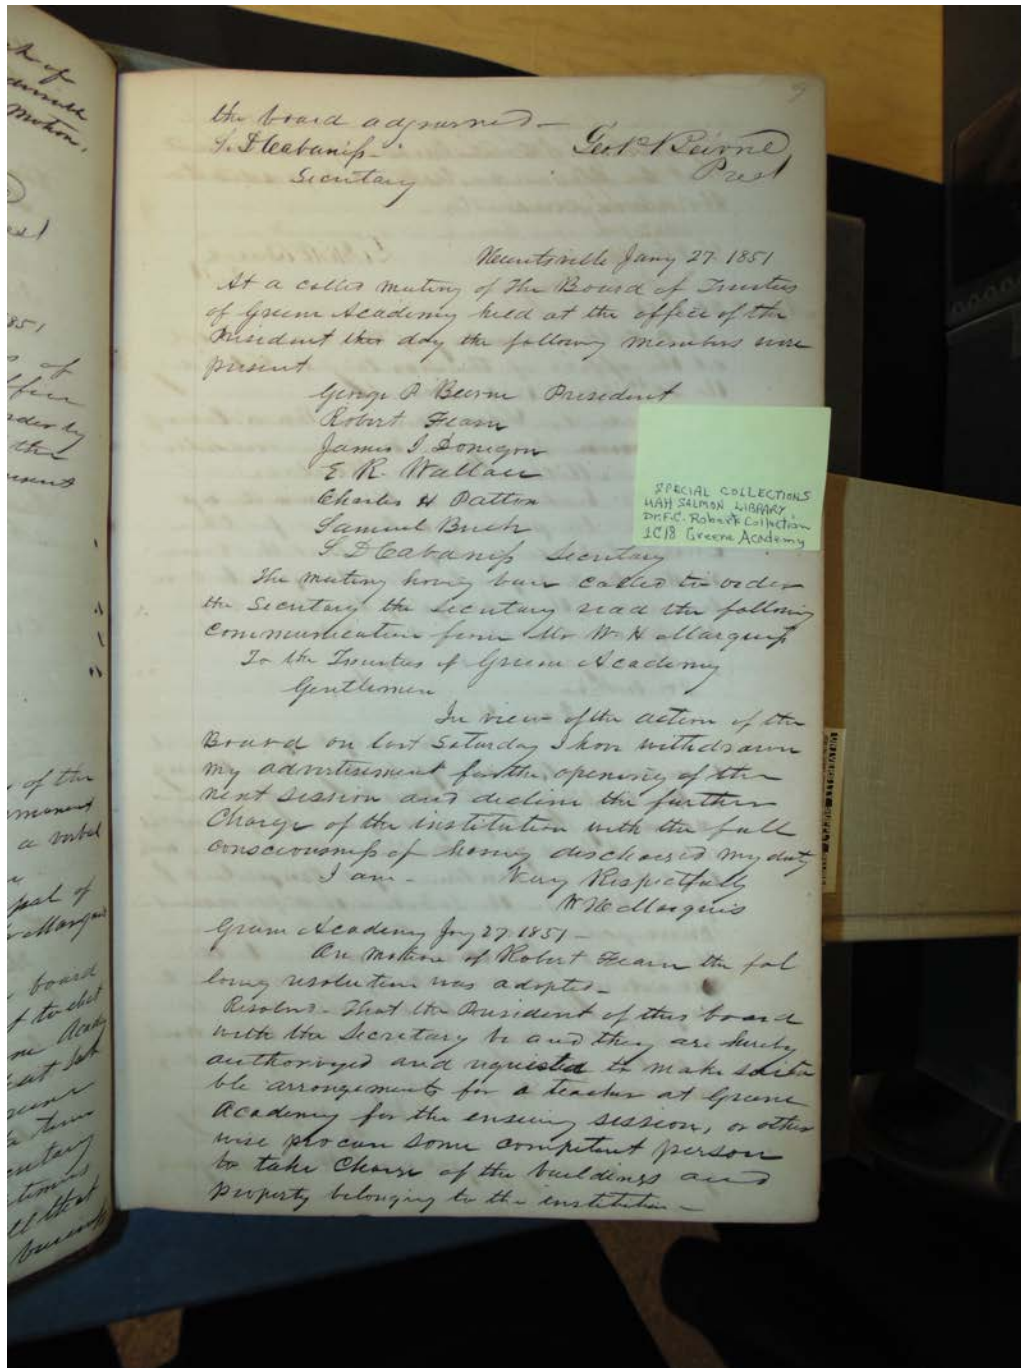 9
the board adjourned—
S. D Cabaniss- Geo. P Beirne
Secretary Prest
Huntsville Jany 27. 1851
At a called meeting of the Board of Trustees
of Greene Academy held at the office of the
President this day the following members were
present
George P Beirne President
Robert Fearn
James I. Donegan
E. R. Wallace
Charles H Patton
Samuel Bush
S. D Cabaniss Secretary
The meeting having been called to order
the Secretary the Secretary read the following
communication from Mr W. H Marquis
To the Trustees of Greene Academy
Gentlemen
In view of the action of the
Board on last Saturday I have withdrawn
my advertisement for the opening of the
next session and decline the further
Charge of the institution with the full
consciousness of having discharged my duty
I am- Very Respectfully
W H Marquis
Green Academy Jny 27 1851-
On motion of Robert Fearn the fol
lowing resolution was adopted-
Resolved- That the President of this board
with the Secretary be and they are hereby
authorized and requested to make suita
ble arrangements for a teacher at Greene
Academy for the ensuing session, or other
wise procure some competent person
to take Charge of the buildings and
property belonging to the institution-
SPECIAL COLLECTIONS
UAH SALMON LIBRARY
Dr. F.C. Roberts Collection
1C18 Greene Academy